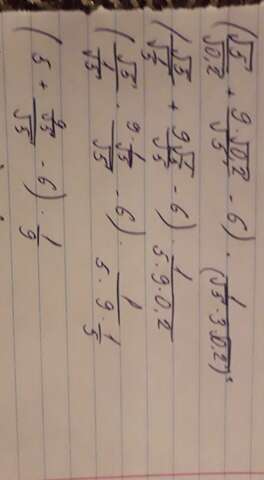 (√5/√0,2 + 9·√0,2/√5 - 6) · 1/(√5·3√0,2)²
(√5/√(1/5) + 9√(1/5)/√5 - 6) · 1/(5·9·0,2)
(√5/(1/√5) · 9·(1/√5)/√5 - 6) · 1/(5·9·1/5)
(5 + (9/√5)/√5 - 6) · 1/9